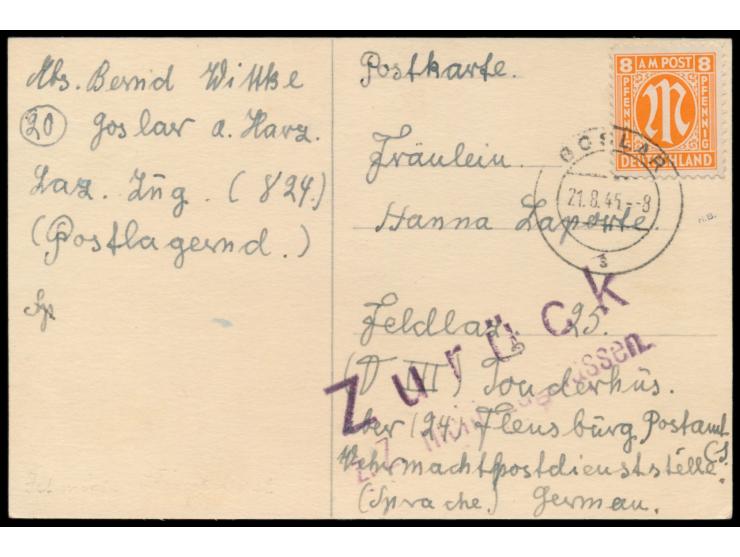 Abs. Bernd Wittke
(20) Goslar a. Harz.
Laz. Zug. (824.)
(Postlagernd.)
Postkarte.
Fräulein.
Hanna Laporte.
Feldlaz. 25.
(D III) Sonderhus.
über (24) Flensburg Postamt
Wehrmachtpostdienststelle.
(Sprache.) German.
8 AM POST 8
PFENNIG PFENNIG
M
DEUTSCHLAND
GOSLAR
21.8.45.-8
Zurück